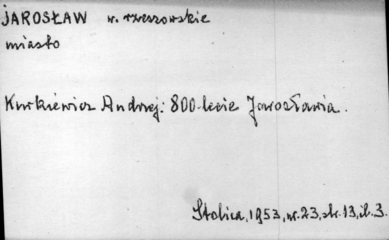 JAROSŁAW w. rzeszowskie
miasto
Kurkiewicz Andrzej: 800-lecie Jarosławia.
Stolica, 1953, nr. 23, str. 13, il. 3.